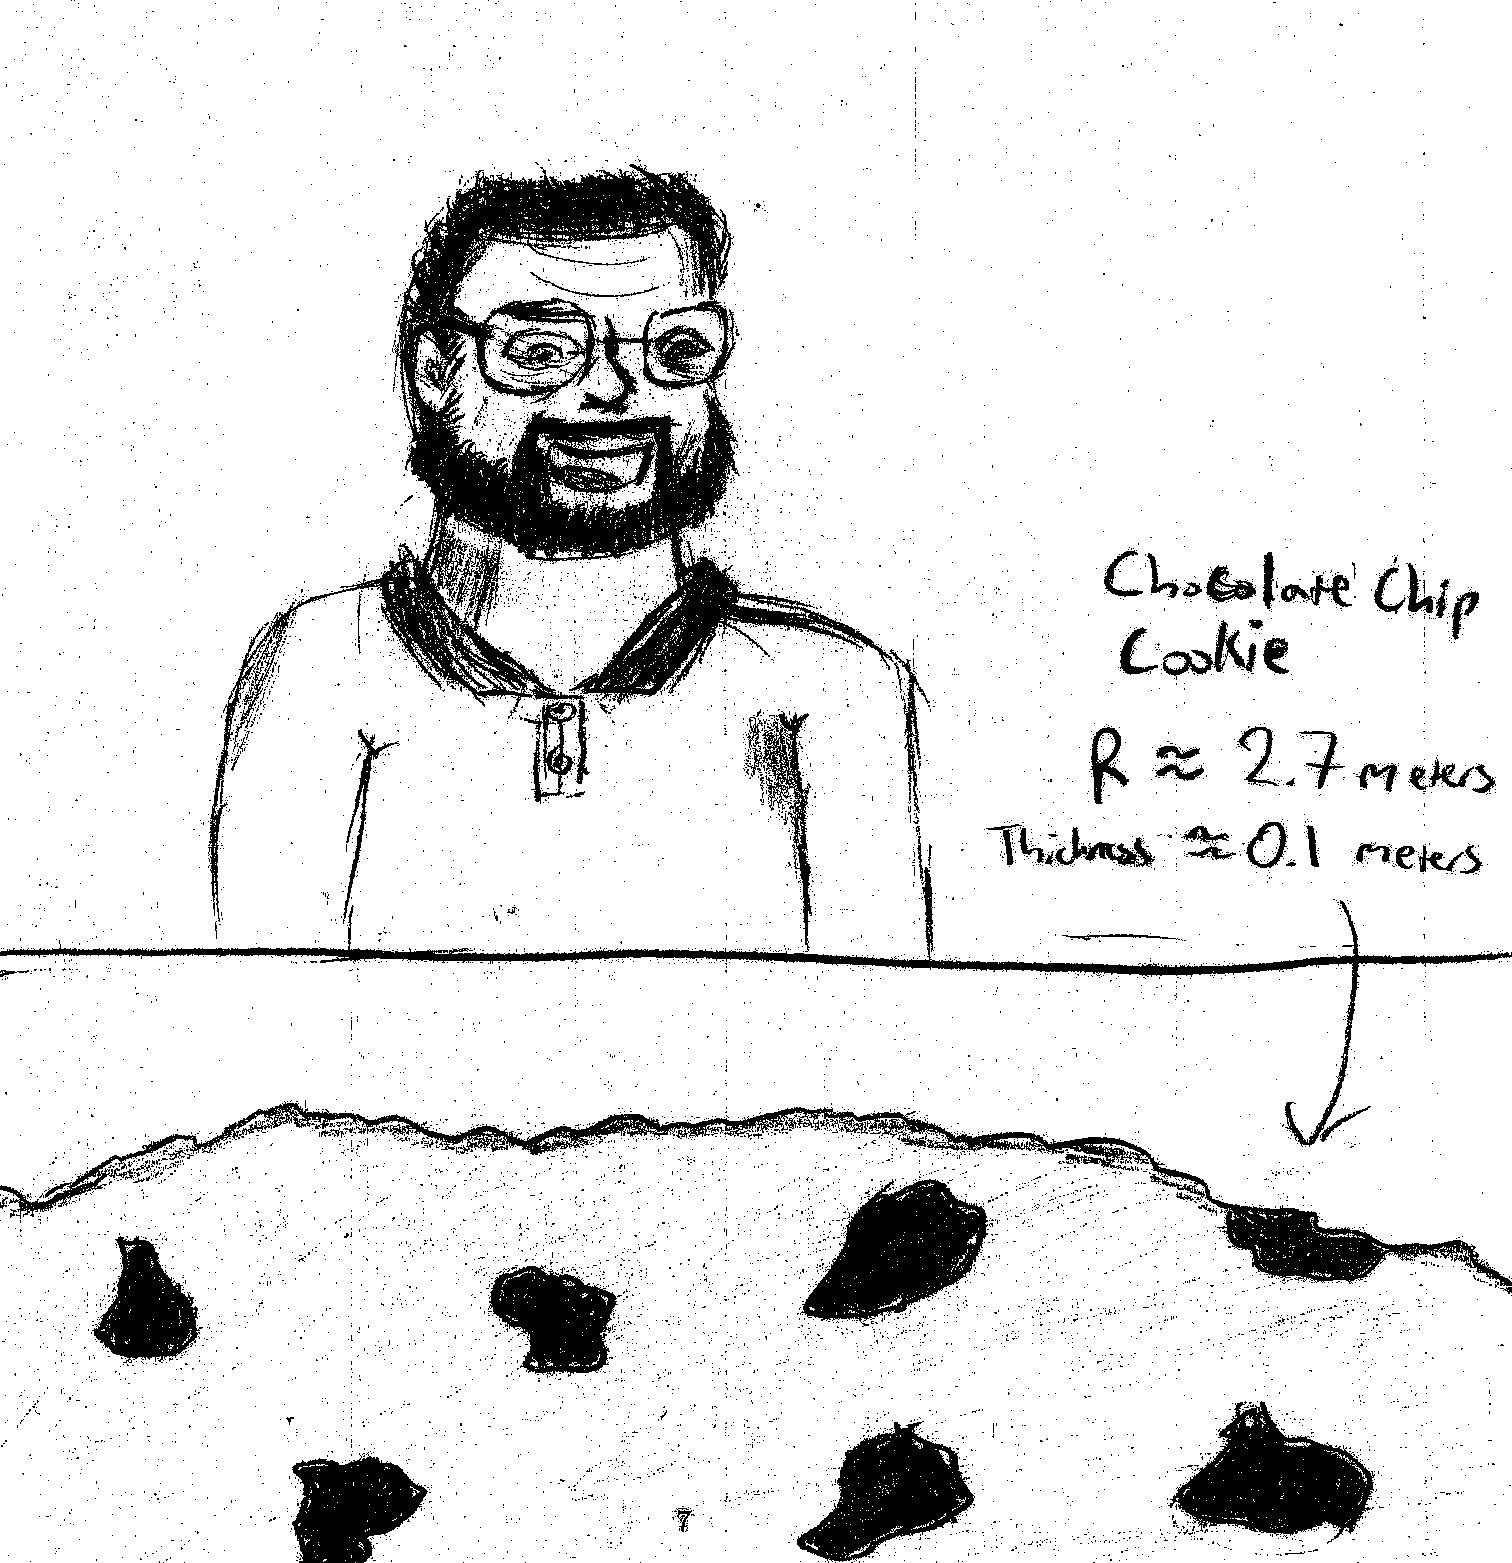 Chocolate Chip
Cookie
R ≈ 2.7 meters
Thickness ≈ 0.1 meters
7